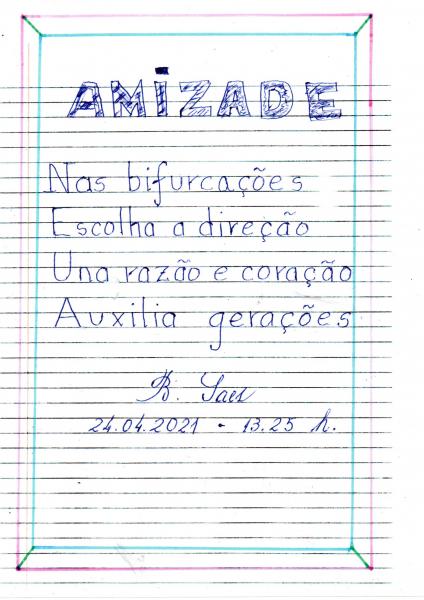 AMIZADE
Nas bifurcações
Escolha a direção
Una razão e coração
Auxilia gerações
B. Saes
24.04.2021 - 13.25 h.